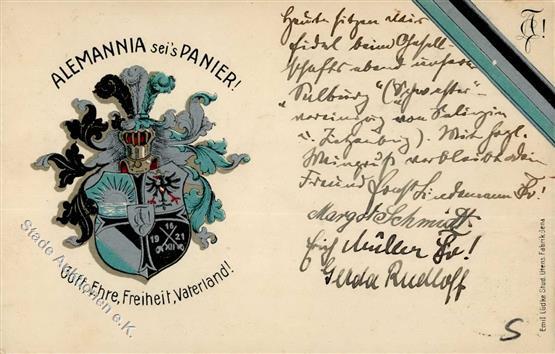 ALEMANNIA sei's PANIER!
19 16 21
XII
Gott, Ehre, Freiheit, Vaterland!
Stade Auktionen e.K.
Heute sitzen wir
fidel beim Gesell-
schafts abend unserer
"Sulburg" (Schwester-
vereinigung von Salingia
u. ). Mit
Weingruß verbleibt dein
Freund Lindemann
Margot Schmidt.
Erich Müller
Gerda Rudloff
Emil Lüdke Stud. Utens. Fabrik, Jena
S